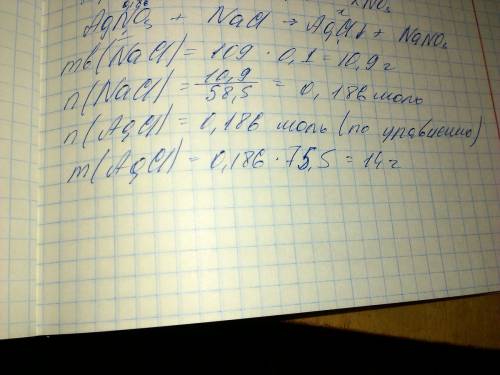 KNO₃
0,186 x
AgNO₃ + NaCl → AgCl↓ + NaNO₃
mв(NaCl) = 109 · 0,1 = 10,9 г
n(NaCl) = 10,9/58,5 = 0,186 моль
n(AgCl) = 0,186 моль (по уравнению)
m(AgCl) = 0,186 · 75,5 = 14 г